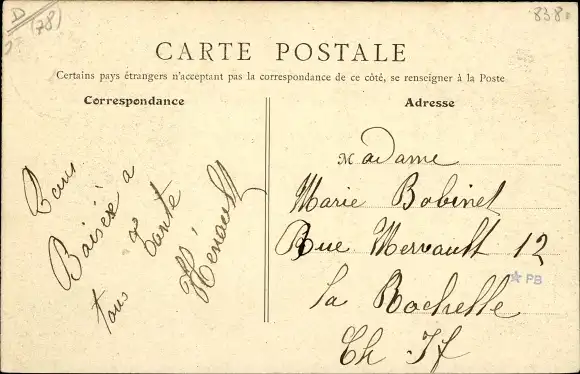 D
(78)
838
CARTE POSTALE
Certains pays étrangers n'acceptant pas la correspondance de ce côté, se renseigner à la Poste
Correspondance
Bons
Baisés a
tous & tante
Hénault
Adresse
Madame
Marie Bobinet
Rue Mervault 12
la Rochelle
Ch If
★ PB